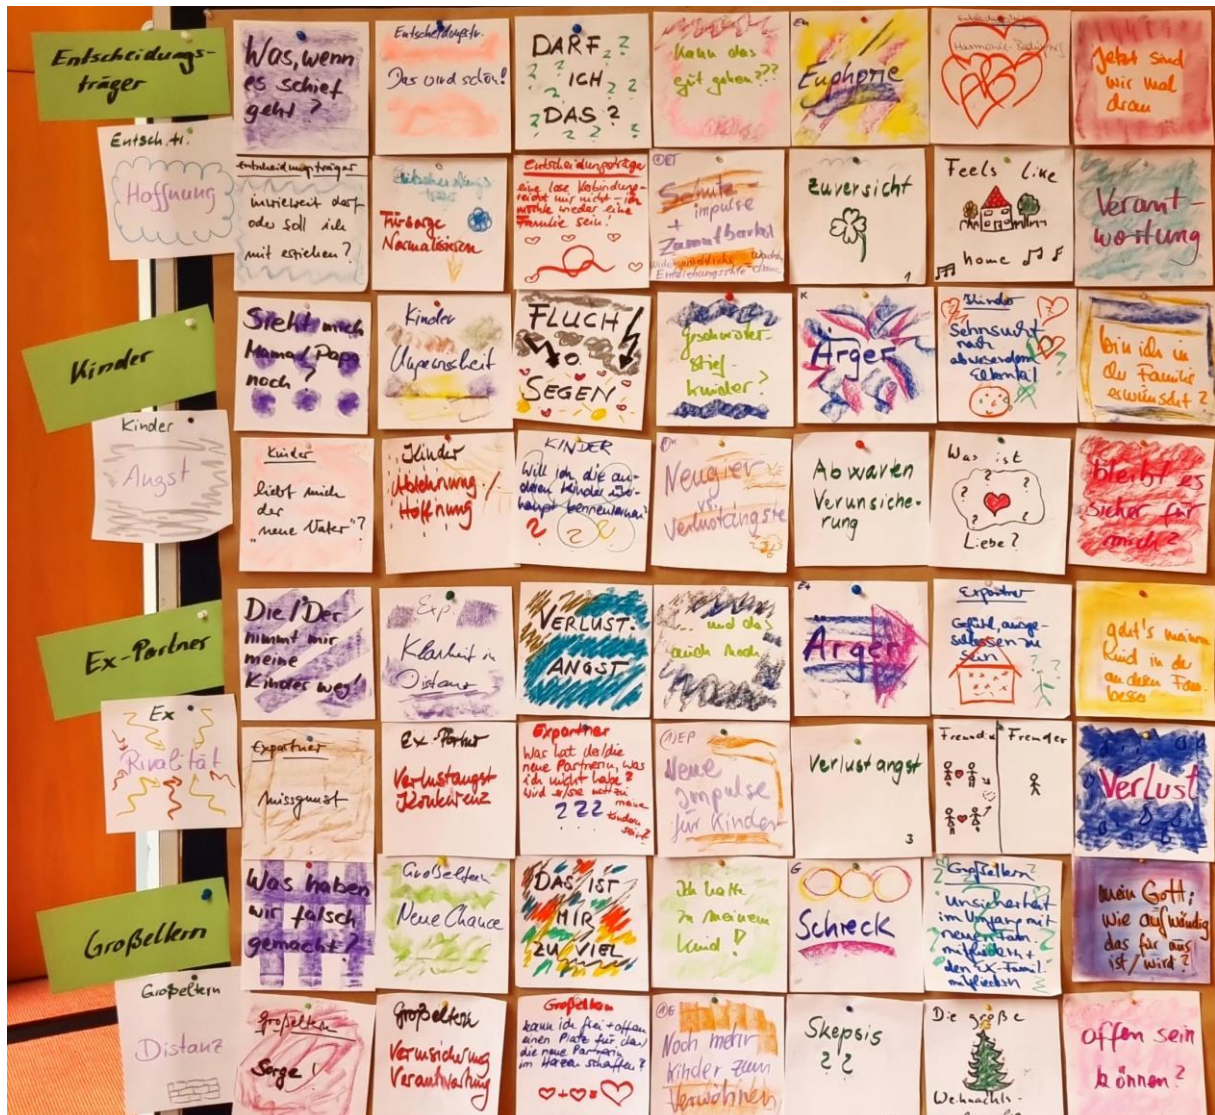 Entscheidungs-
träger
Was, wenn
es schief
geht?
Entscheidungstr.
Das wird schön!
DARF
ICH
DAS?
Kann das
gut gehen???
Euphorie
Harmonie-Bedürfnis
Jetzt sind
wir mal
dran
Entsch.tr.
Hoffnung
Entscheidungsträger
inwieweit darf
oder soll ich
mit erziehen?
Fürsorge
Normalisieren
Entscheidungsträger
eine lose Verbindung
reicht mir nicht – ich
möchte wieder eine
Familie sein!
① ET
Schutz-
impulse
+
Zumutbarkeit
Zuversicht
1
Feels like
home
Verant-
wortung
Kinder
Sieht mich
Mama/Papa
noch?
Kinder
Ungewissheit
FLUCH
O.
SEGEN
Geschwister-
stief-
kinder?
K
Ärger
Kinder
Sehnsucht
nach
abwesendem
Elternteil
bin ich in
der Familie
erwünscht?
Kinder
Angst
Kinder
liebt mich
der
"neue Vater"?
Kinder
Ablehnung/
Hoffnung
KINDER
Will ich die an-
deren Kinder über-
haupt kennenlernen?
Neugier
vs.
Verlustängste
Abwarten
Verunsiche-
rung
Was ist
Liebe?
bleibt es
sicher für
mich?
Ex-Partner
Die/Der
nimmt mir
meine
Kinder weg!
Exp.
Klarheit in
Distanz
VERLUST-
ANGST
... und das
auch noch
Ex
Ärger
Expartner
Gefühl, ausge-
schlossen zu
sein
geht's meinem
Kind in der
anderen Fam.
besser
Ex
Rivalität
Expartner
Missgunst
Ex-Partner
Verlustangst
Konkurrenz
Expartner
Was hat der/die
neue Partnerin, was
ich nicht habe?
Wird er/sie nett zu
meinen
Kindern
sein?
???
① EP
Neue
Impulse
für Kinder
Verlustangst
3
Freund
Fremder
Verlust
Großeltern
Was haben
wir falsch
gemacht?
Großeltern
Neue Chance
DAS IST
MIR
ZU VIEL
Ich halte
zu meinem
Kind!
G
Schreck
Großeltern
Unsicherheit
im Umgang mit
neuen Fam.
mitgliedern +
den Ex-Famil.
mitgliedern
mein Gott;
wie aufwändig
das für uns
ist/wird?
Großeltern
Distanz
Großeltern
Sorge!
Großeltern
Verunsicherung
Verantwortung
Großeltern
kann ich frei + offen
einen Platz für den/
die neue Partnerin
im Herzen schaffen?
① G
Noch mehr
Kinder zum
Verwöhnen
Skepsis
??
Die große
Weihnachts-
offen sein
können?